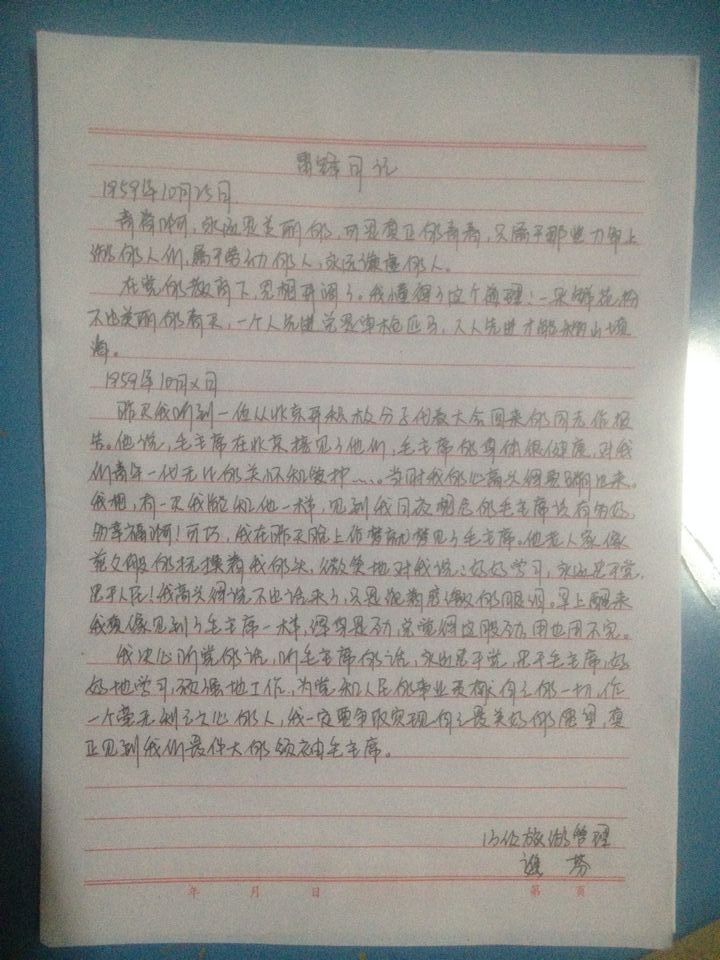 雷锋日记
1959年10月25日
青春啊,永远是美丽的,可是真正的青春,只属于那些力争上
游的人们,属于劳动的人,永远谦虚的人。
在党的教育下,思想开阔了。我懂得了这个道理:一朵鲜花扮
不出美丽的春天,一个人先进总是单枪匹马,人人先进才能移山填
海。
1959年10月X日
昨天我听到一位从北京开积极分子代表大会回来的同志作报
告。他说,毛主席在北京接见了他们,毛主席的身体很健康,对我
们青年一代无比的关怀和爱护……当时我的心高兴得要蹦出来。
我想,有一天我能和他一样,见到我日夜想念的毛主席该有多好,
多幸福啊!可巧,我在昨天晚上作梦就梦见了毛主席。他老人家像
慈父般的抚摸着我的头,微笑地对我说:好好学习,永远忠于党,
忠于人民!我高兴得说不出话来了,只是流着感激的眼泪。早上醒来
我真像见到了毛主席一样,浑身是劲,总觉得这股劲,用也用不完。
我决心听党的话,听毛主席的话,永远忠于党,忠于毛主席,好
好地学习,顽强地工作,为党和人民的事业贡献自己的一切,作
一个毫无利己之心的人,我一定要争取实现自己最美好的愿望,真
正见到我们最伟大的领袖毛主席。
旅游管理
年 月 日 第 页